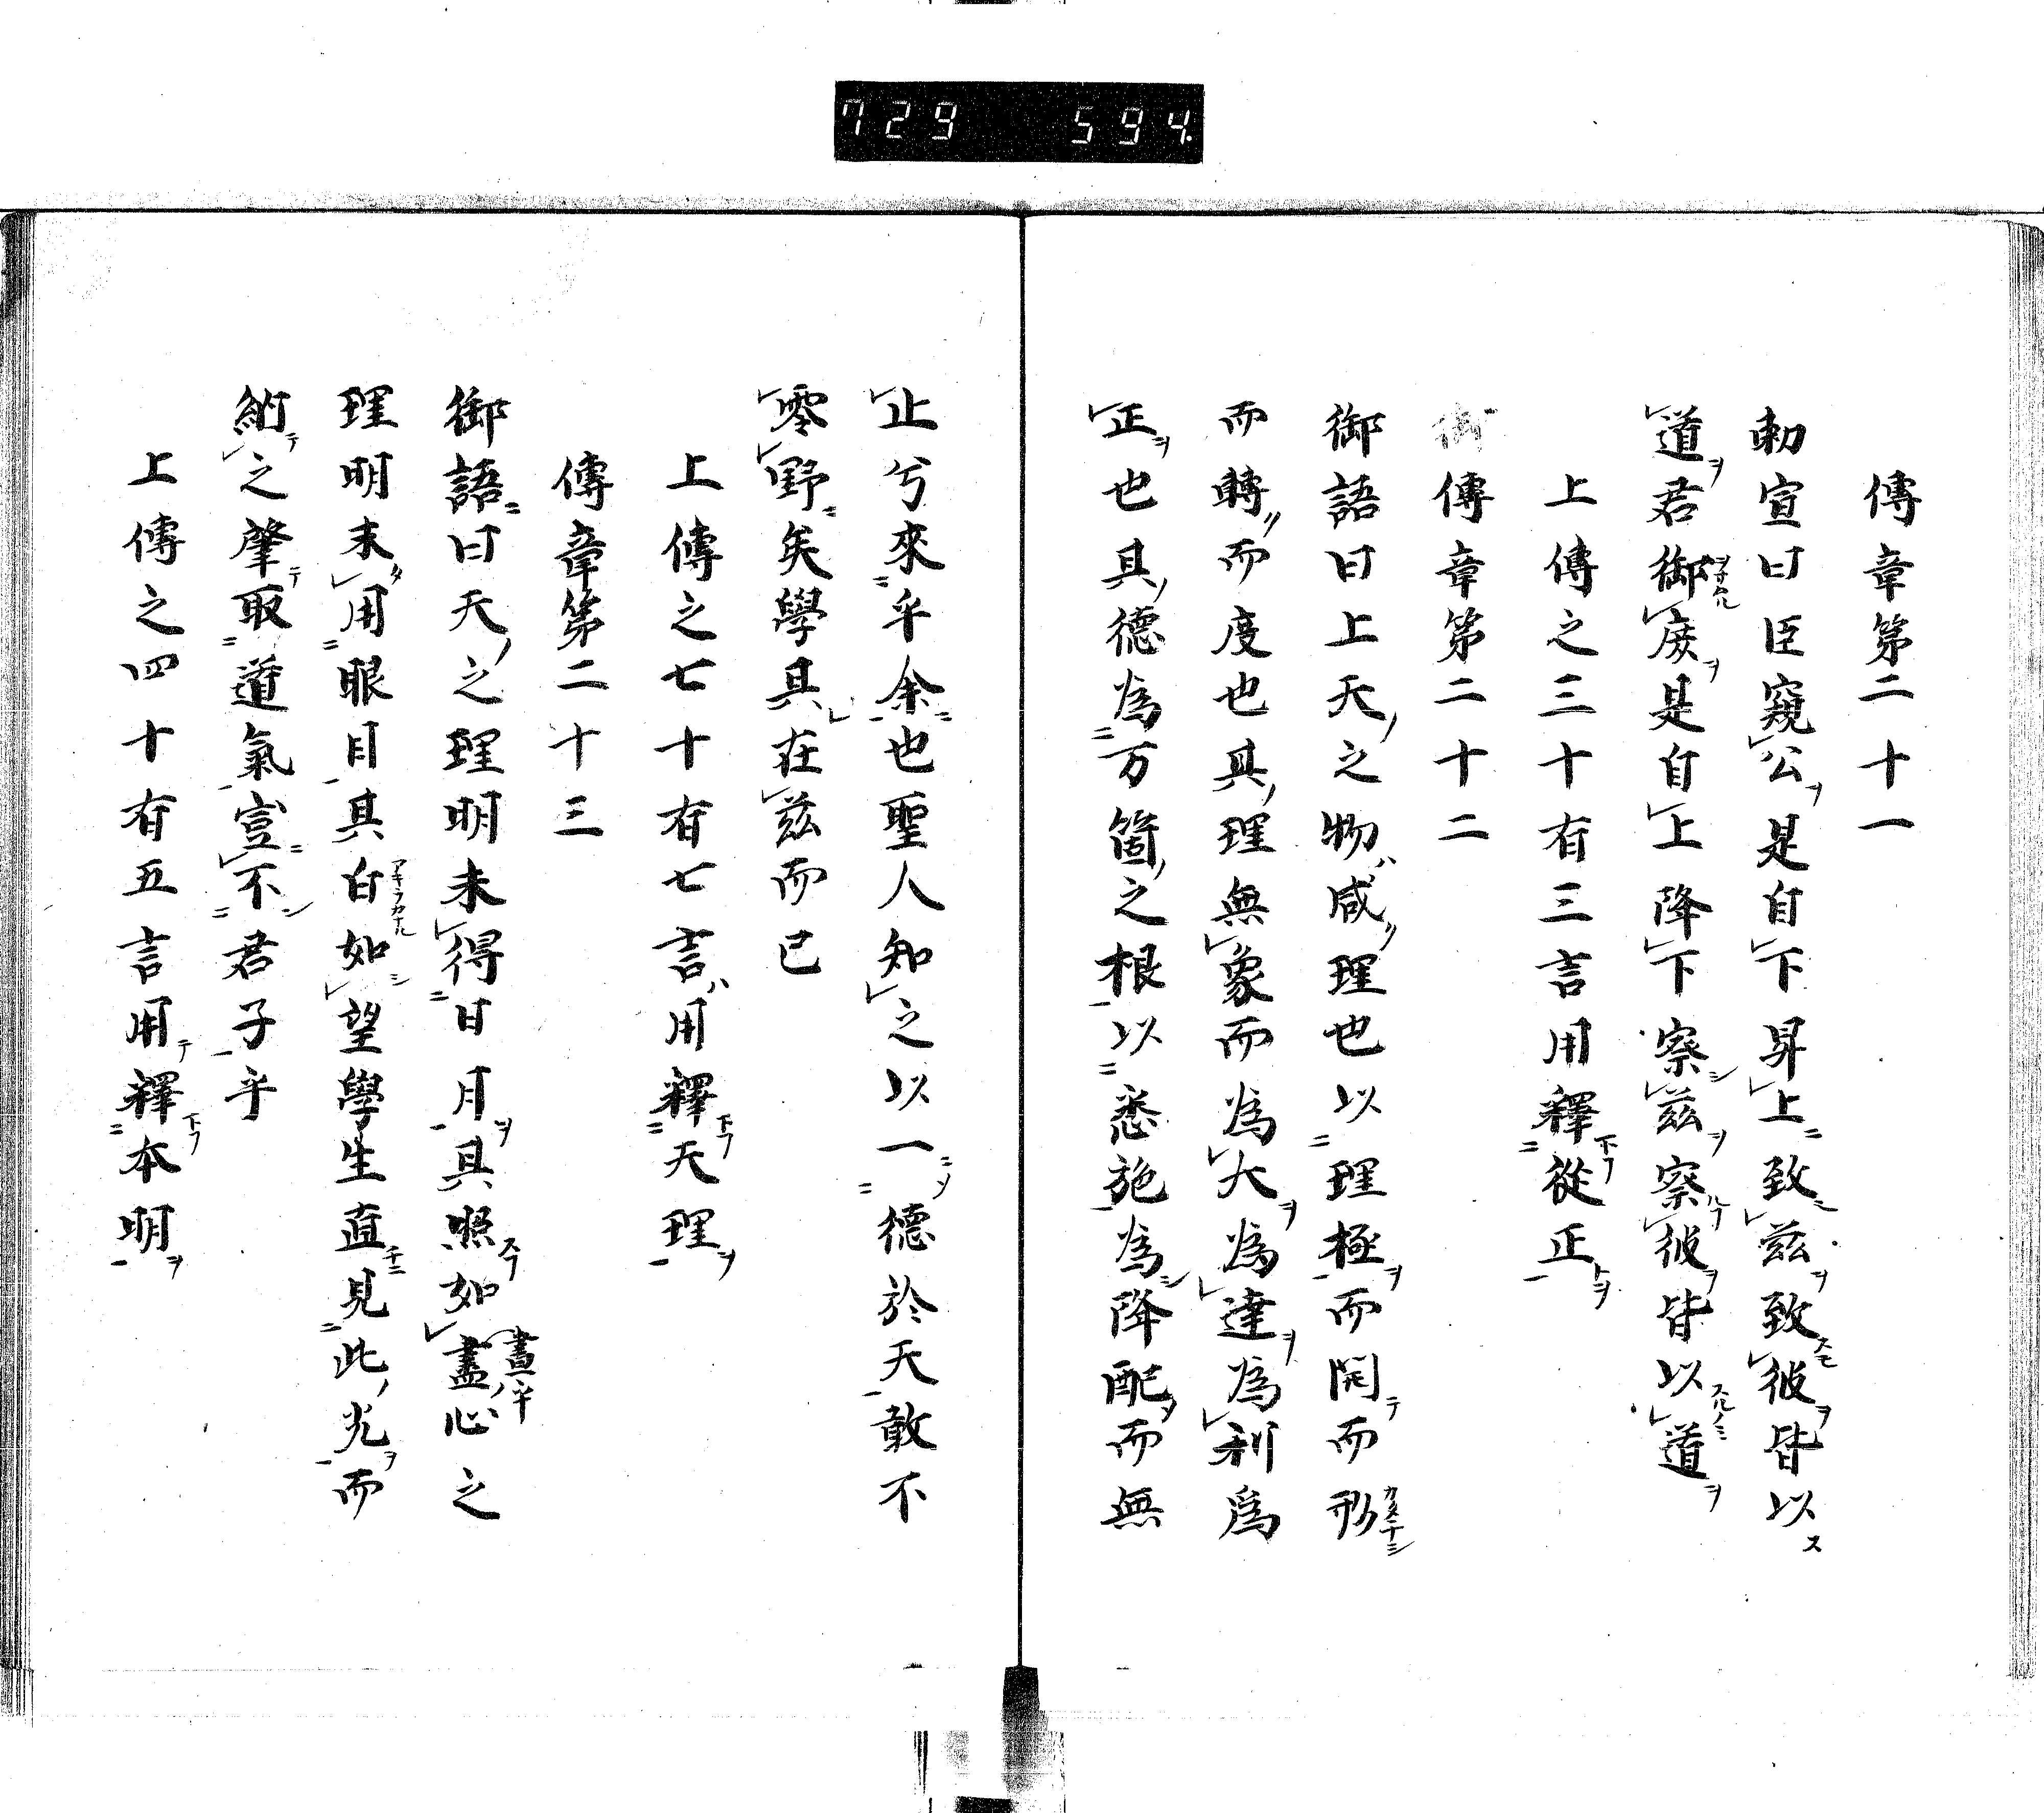 729 594
傳章第二十一
勅宣曰臣窺公是自下昇上致茲致彼皆以
道君御庶是自上降下察茲察彼皆以道
上傳之三十有三言用釋從正
傳章第二十二
御語曰上天之物咸理也以理極而開而形
而轉而度也其理無象而為大為達為利為
正也其德為万箇之根以悉施為降配而無
止兮來乎余也聖人知之以一德於天敢不
零野矣學具在茲而已
上傳之七十有七言用釋天理
傳章第二十三
御語曰天之理明未得日月具照如盡心之
理明末用眼目其白如望學生直見此光而
納之肇取道氣豈不君子乎
上傳之四十有五言用釋本明